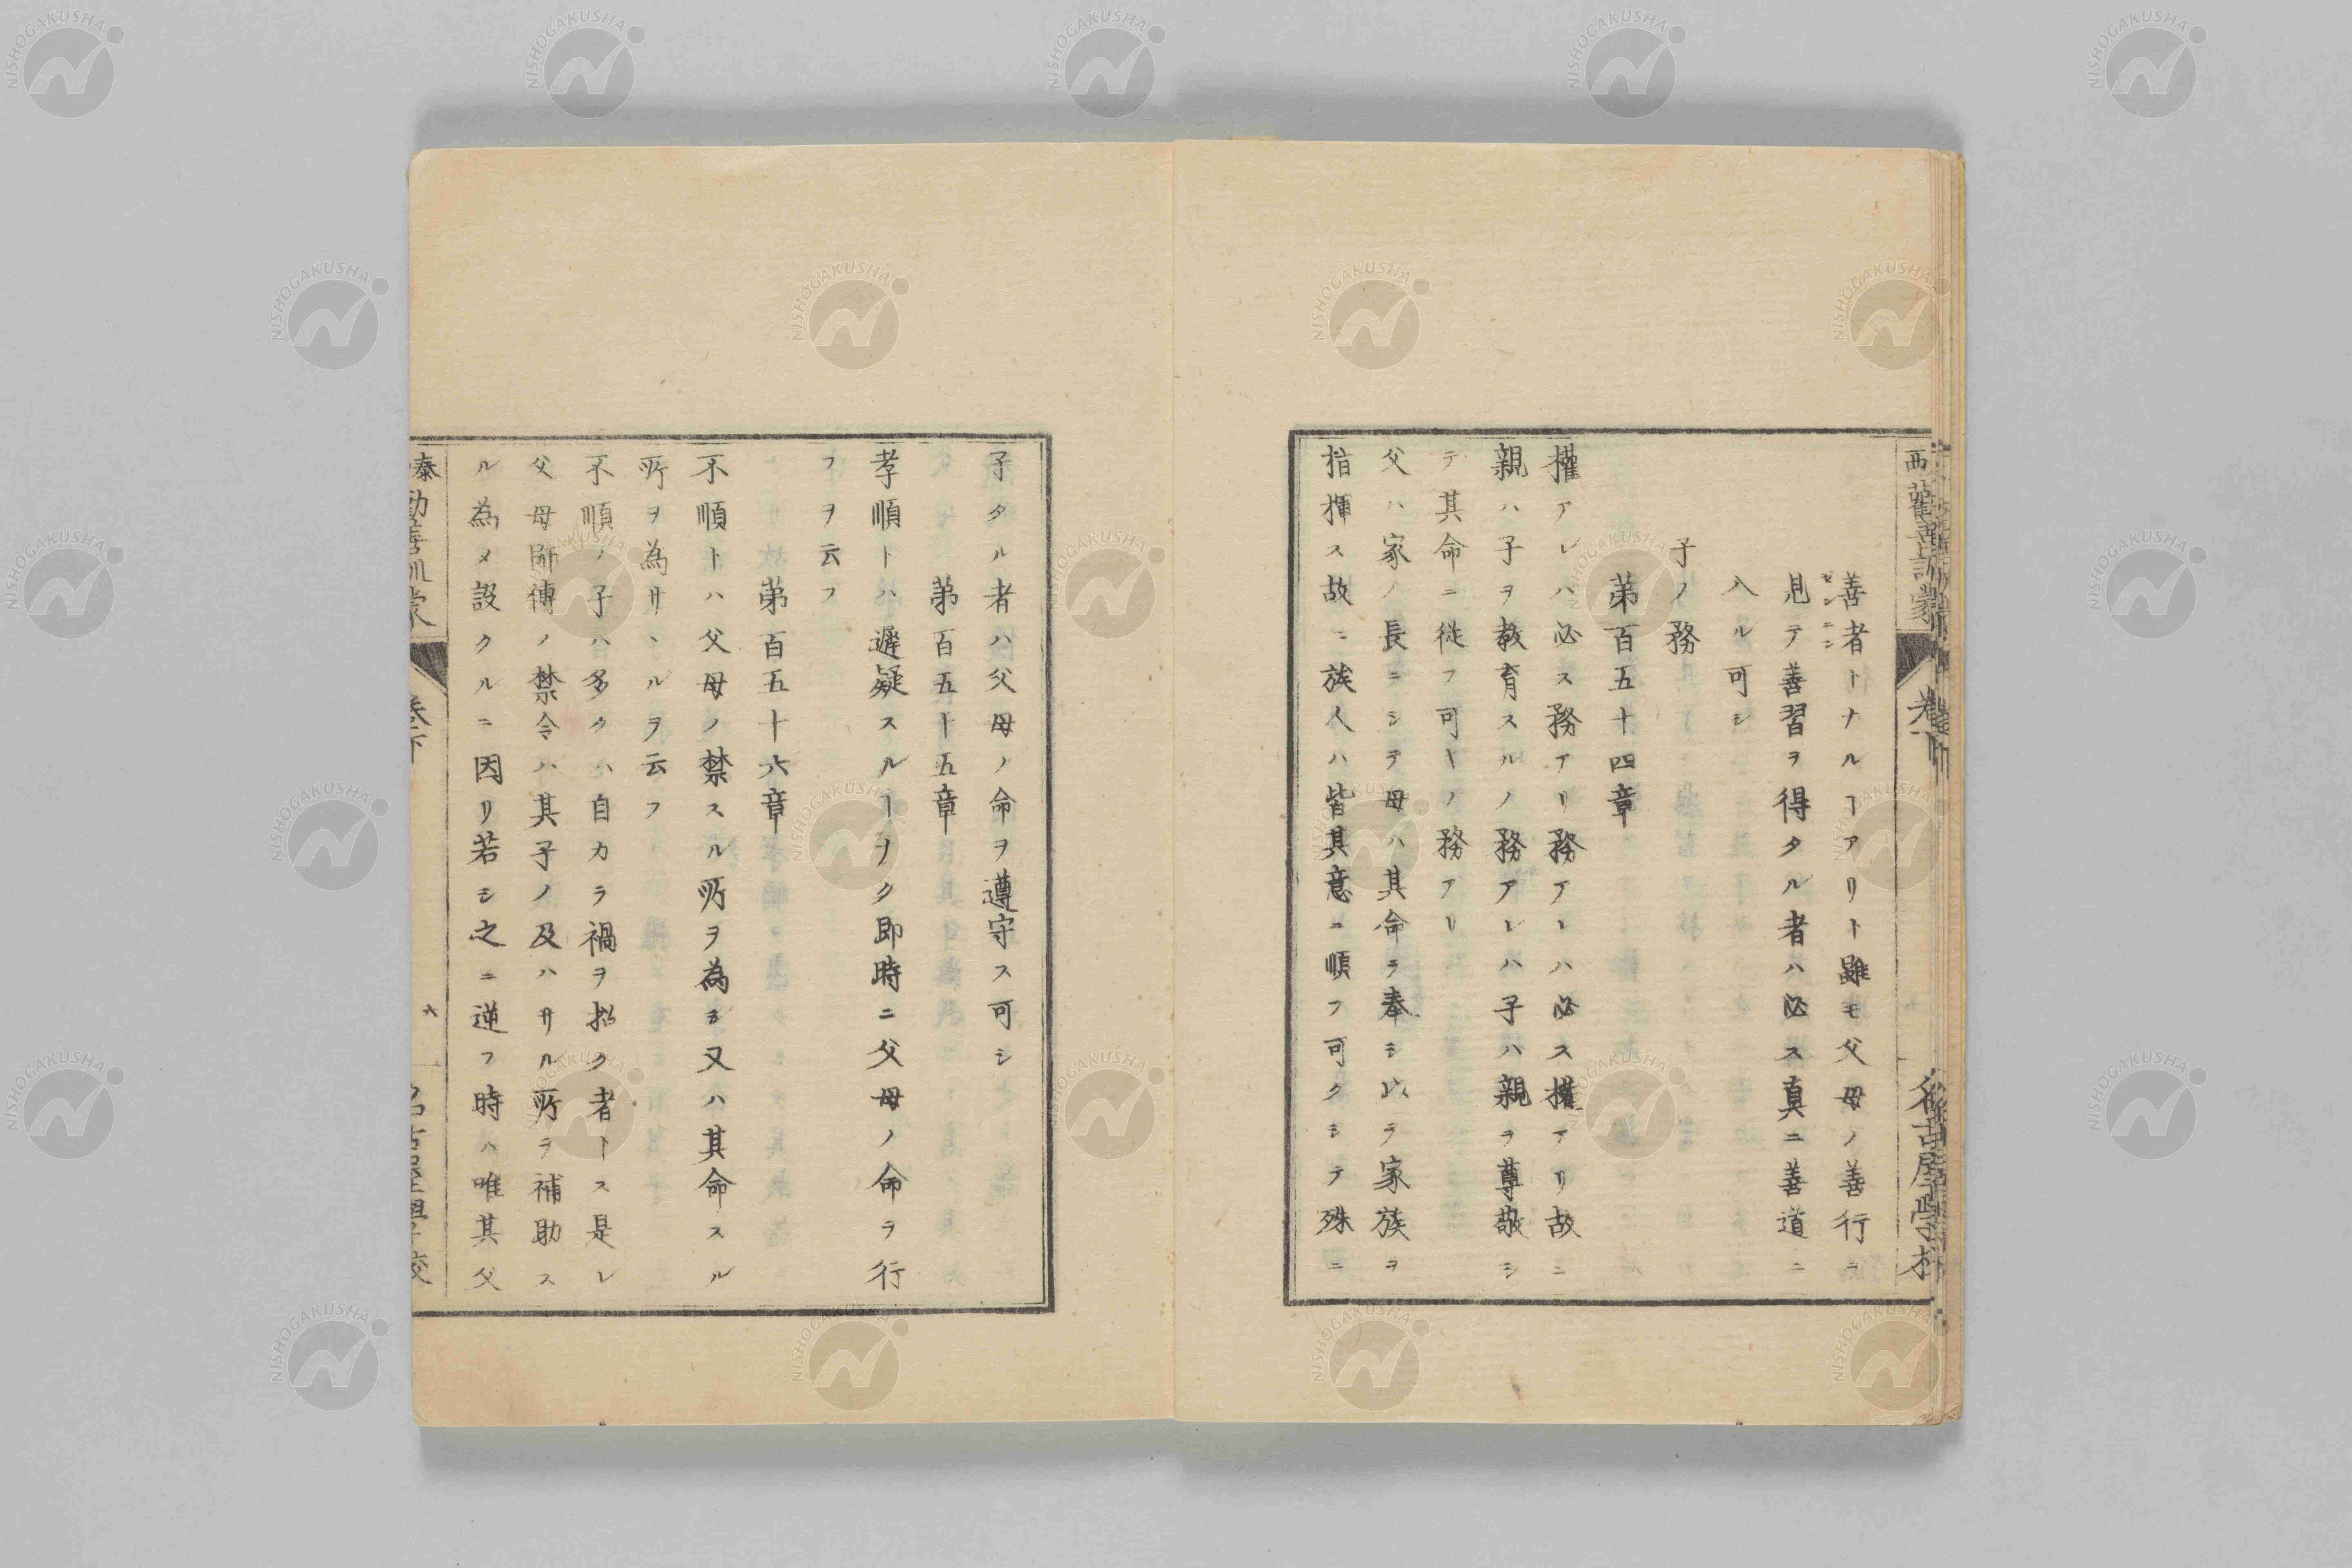 善者トナルヿアリト雖モ父母ノ善行ヲ
見テ善習ヲ得タル者ハ必ス真ニ善道ニ
入ル可シ
子ノ務
第百五十四章
權アレハ必ス務アリ務アレハ必ス權アリ故ニ
親ハ子ヲ教育スルノ務アレハ子ハ親ヲ尊敬シ
テ其命ニ従フ可キノ務アリ
父ハ家ノ長ニシテ母ハ其命ヲ奉シ以テ家族ヲ
指揮ス故ニ族人ハ皆其意ニ順フ可クシテ殊ニ
子タル者ハ父母ノ命ヲ遵守ス可シ
第百五十五章
孝順トハ遲疑スルヿナク即時ニ父母ノ命ヲ行
フヲ云フ
第百五十六章
不順トハ父母ノ禁スル所ヲ為シ又ハ其命スル
所ヲ為サヽルヲ云フ
不順ノ子ハ多クハ自カラ禍ヲ招ク者トス是レ
父母師傅ノ禁令ハ其子ノ及ハサル所ヲ補助ス
ル為メ設クルニ因リ若シ之ニ逆フ時ハ唯其父
泰
勸善訓蒙
卷下
六
名古屋學校
西
勸善訓蒙
名古屋學校
NISHOGAKUSHA